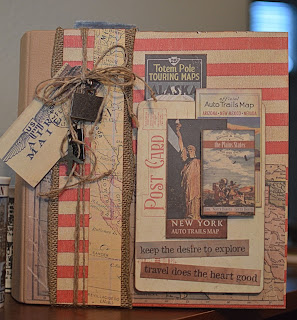 Totem Pole
TOURING MAPS
ALASKA
official
Auto Trails Map
ARIZONA-NEW MEXICO-NEVADA
POST CARD
the Plains States
NEW YORK
AUTO TRAILS MAP
keep the desire to explore
travel does the heart good